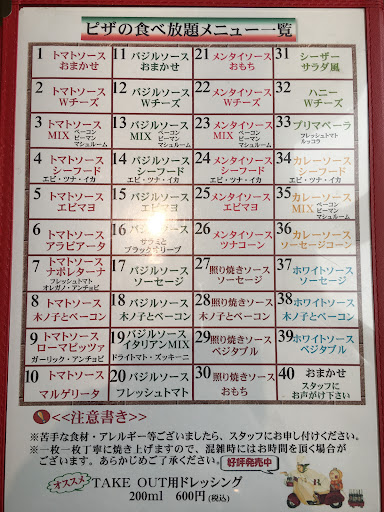 ピザの食べ放題メニュー一覧
1 トマトソース おまかせ
11 バジルソース おまかせ
21 メンタイソース おもち
31 シーザー サラダ風
2 トマトソース Wチーズ
12 バジルソース Wチーズ
22 メンタイソース Wチーズ
32 ハニー Wチーズ
3 トマトソース MIX ベーコン ピーマン マッシュルーム
13 バジルソース MIX ベーコン ピーマン マッシュルーム
23 メンタイソース MIX ベーコン ピーマン マッシュルーム
33 プリマベーラ フレッシュトマト ルッコラ
4 トマトソース シーフード エビ・ツナ・イカ
14 バジルソース シーフード エビ・ツナ・イカ
24 メンタイソース シーフード エビ・ツナ・イカ
34 カレーソース シーフード エビ・ツナ・イカ
5 トマトソース エビマヨ
15 バジルソース エビマヨ
25 メンタイソース エビマヨ
35 カレーソース MIX ベーコン ピーマン マッシュルーム
6 トマトソース アラビアータ
16 バジルソース サラミと ブラックオリーブ
26 メンタイソース ツナコーン
36 カレーソース ソーセージコーン
7 トマトソース ナポレターナ フレッシュトマト オレガノ・アンチョビ
17 バジルソース ソーセージ
27 照り焼きソース ソーセージ
37 ホワイトソース ソーセージ
8 トマトソース 木ノ子とベーコン
18 バジルソース 木ノ子とベーコン
28 照り焼きソース 木ノ子とベーコン
38 ホワイトソース 木ノ子とベーコン
9 トマトソース ローマピッツァ ガーリック・アンチョビ
19 バジルソース イタリアンMIX ドライトマト・ズッキーニ
29 照り焼きソース ベジタブル
39 ホワイトソース ベジタブル
10 トマトソース マルゲリータ
20 バジルソース フレッシュトマト
30 照り焼きソース おもち
40 おまかせ スタッフに お声がけ下さい
<<注意書き>>
※苦手な食材・アレルギー等ございましたら、スタッフにお申し付けください。
※一枚一枚丁寧に焼き上げますので、混雑時にはお時間を頂く場合が
ございます。あらかじめご了承ください。
好評発売中
オススメ TAKE OUT用ドレッシング
200ml 600円(税込)